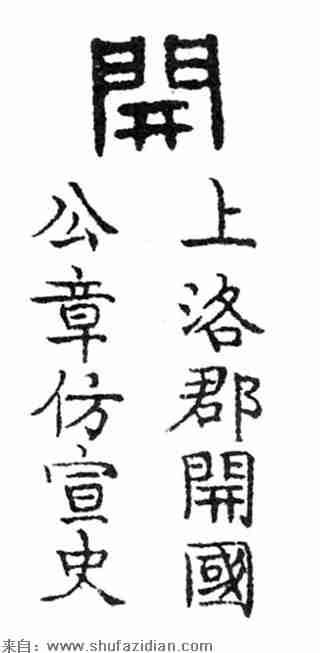 開
上洛郡開國
公章仿宣史
来自：www.shufazidian.com